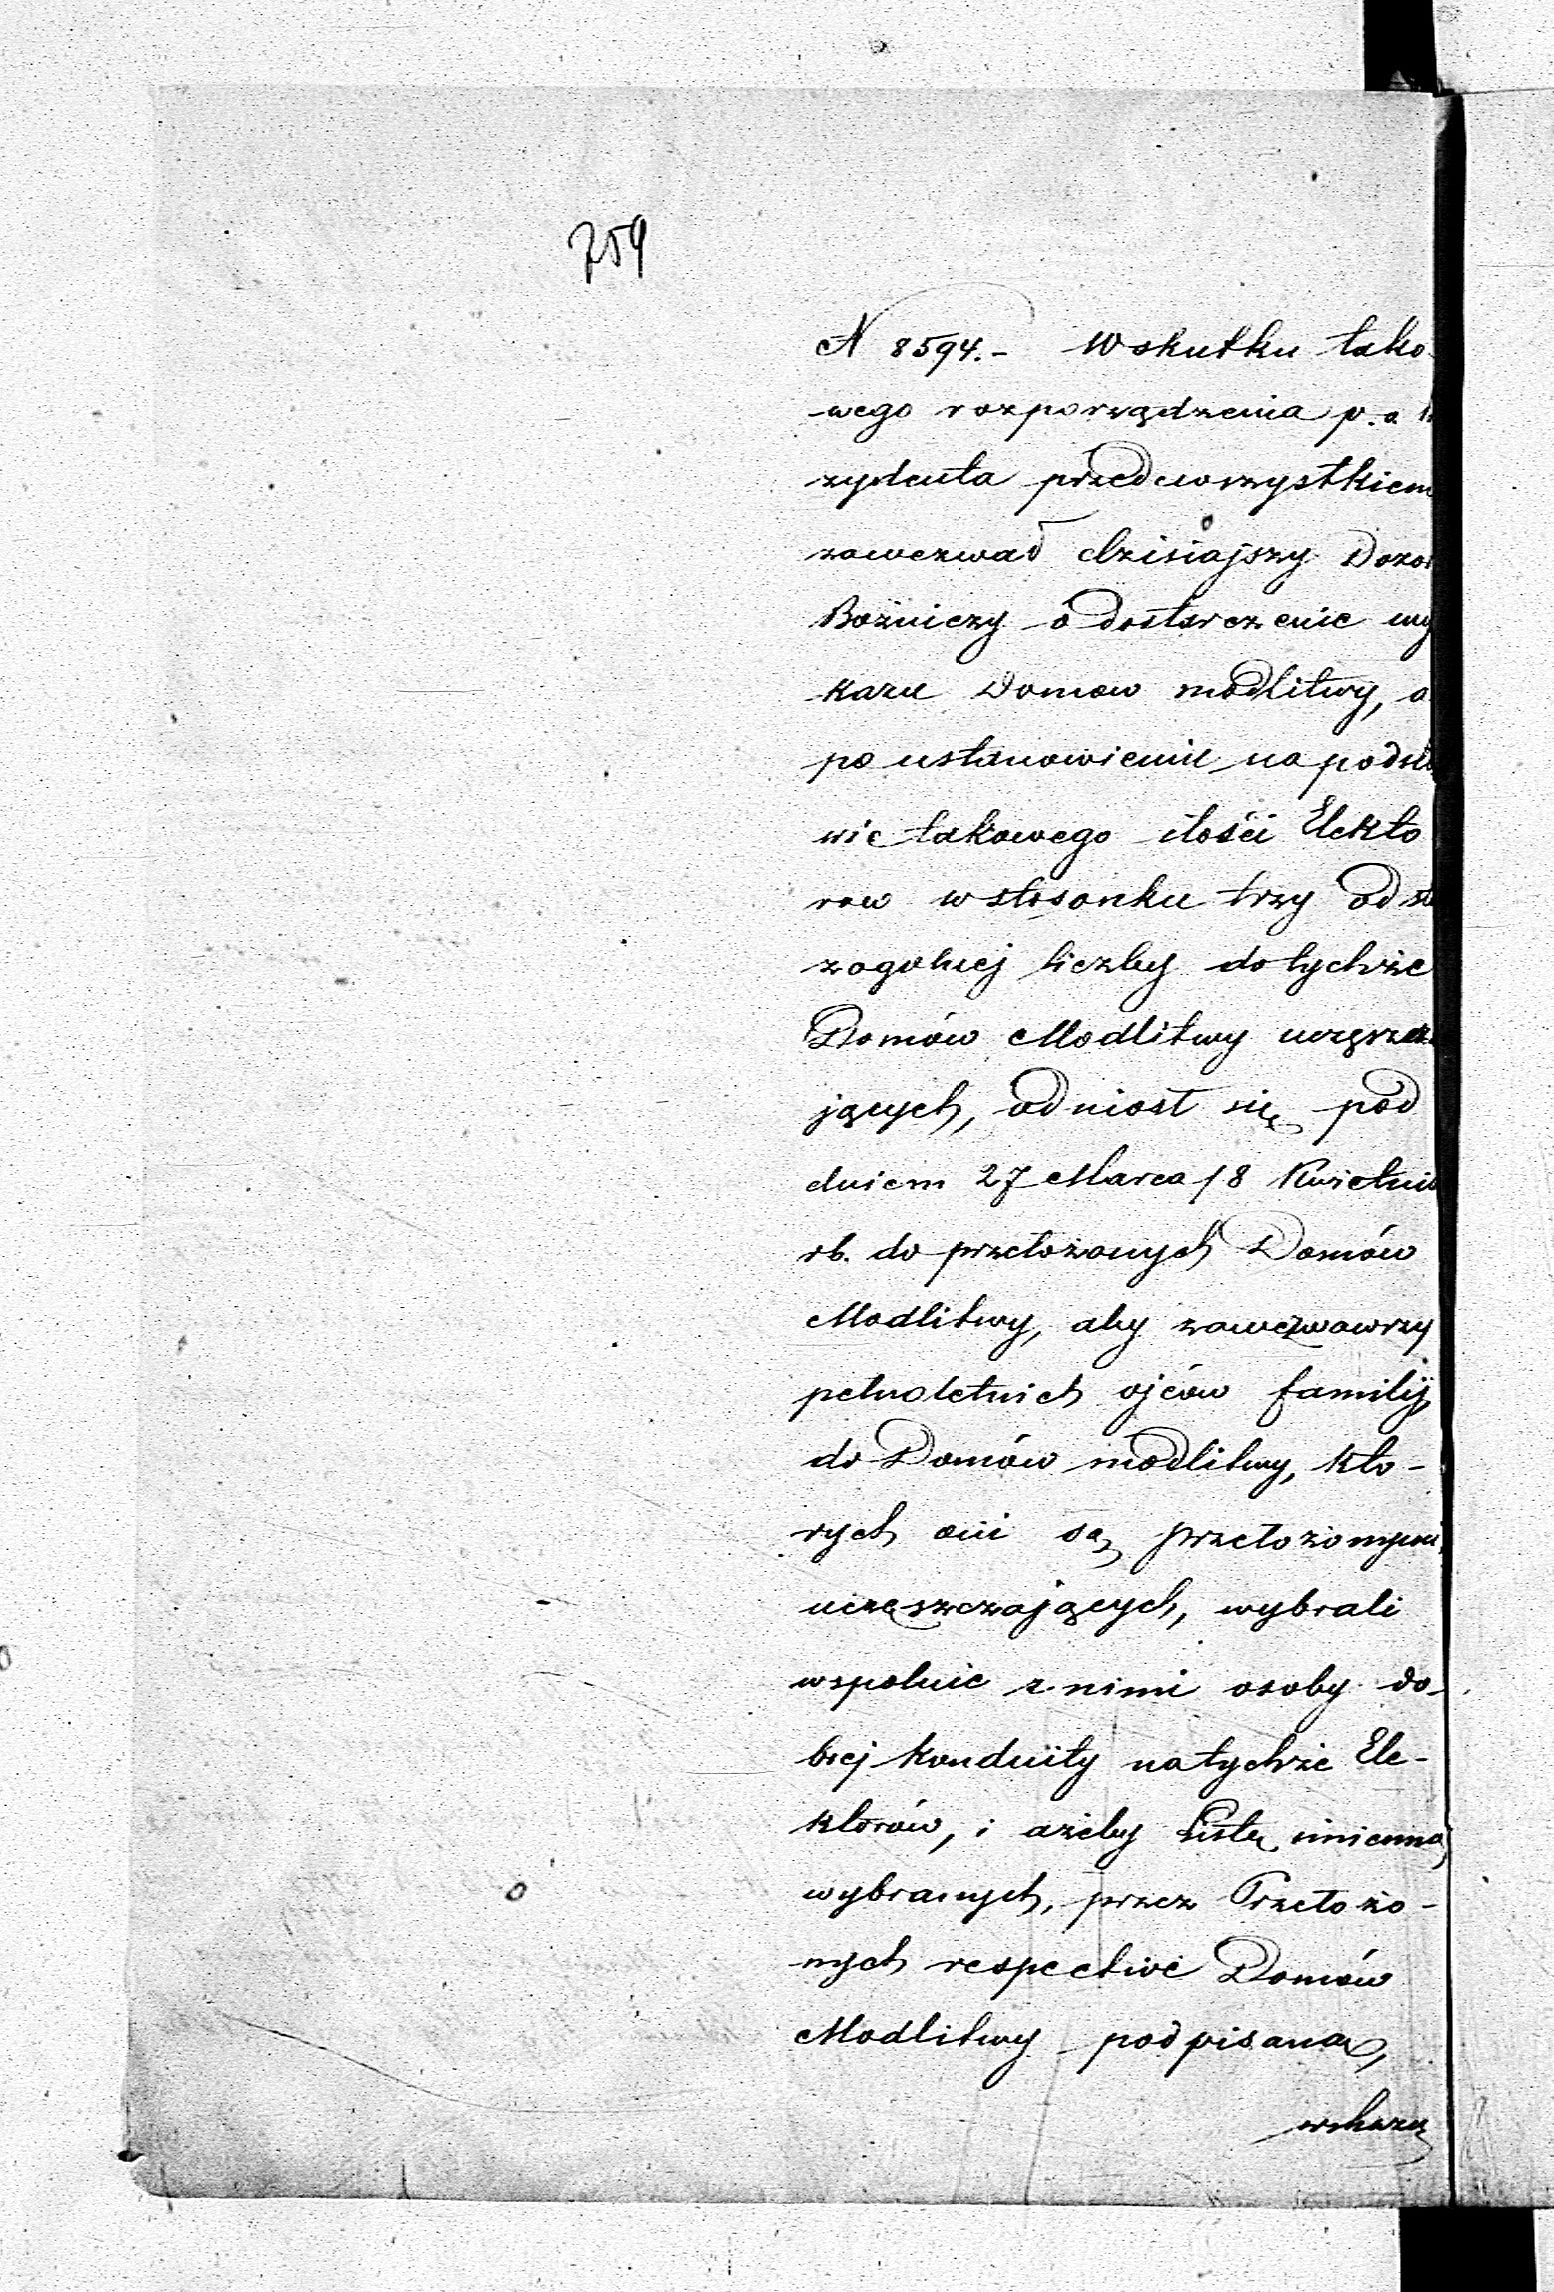 759
N 8594.- W skutku tako-
-wego rozporządzenia p.o.
zydenta przedewszystkiem
zawezwał dzisiajszy Dozor
Bożniczy o dostarczenie wy
kazu Domow modlitwy, a
po ustanowieniu na podsta
wie takowego ilości Elekto
row w stosonku trzy od sta
zogolnej liczby do tychże
Domów Modlitwy uczęszcza
jących, odniosł się pod
dniem 27 Marca / 8 Kwietnia
rb. do przełożonych Domów
Modlitwy, aby zawezwawszy
pełnoletnich ojców familij,
do Domów modlitwy, kto-
rych oni są przełożonymi
uczęszczających, wybrali
wspolnie z nimi osoby do-
brej konduity na tychże Ele-
ktorów, i ażeby Listę imienną
wybranych, przez Przełożo-
nych respective Domów
Modlitwy podpisaną,
wskazu